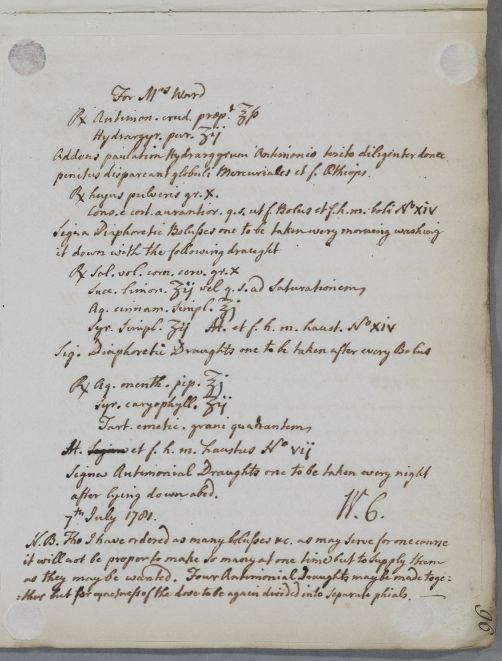 For Mrs Ward
℞ Antimon. crud. ppt. ℥ß
Hydrargyr. pur. ʒij
Addens paulatim Hydrargyrum Antimonio terito diligenter donec
penitus dispareant globuli Mercuriales et f. Æthiops.
℞ hujus pulveris gr. X.
Cons. e cort. aurantior. q. s. ut f. Bolus et f. h. m. boli No XIV
Signa Diaphoretic Bolusses one to be taken every morning washing
it down with the following draught
℞ Sal. vol. corn. cerv. gr. X
Succ. limon. ʒij vel q. s. ad Saturationem
Aq. cinnam. simpl. ℥j
Syr. simpl. ʒij M. et f. h. m. haust. No XIV
Sig. Diaphoretic Draughts one to be taken after every Bolus
℞ Aq. menth. pip. ℥j
Syr. caryophyll. ʒij
Tart. emetic. grani quadrantem
M. et f. h. m. haustus No VIJ
Signa Antimonial Draughts one to be taken every night
after lying down abed.
7th July 1781. W. C.
N. B. Tho I have ordered as many bolusses &c. as may serve for one course
it will not be proper to make so many at one time but to supply them
as they may be wanted. Four Antimonial Draughts may be made toge=
=ther but for exactness of the dose to be again divided into separate phials.
96